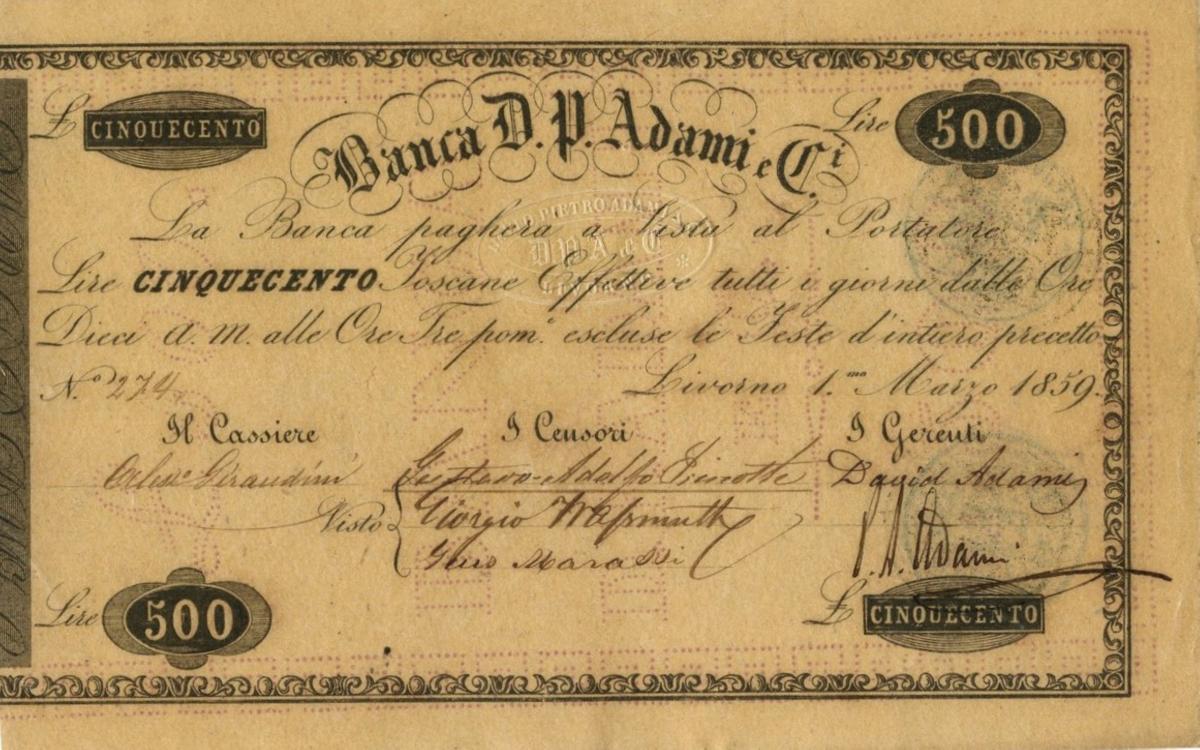 £ CINQUECENTO
Banca D. P. Adami e C.i
Lire 500
La Banca pagherà a Vista al Portatore
D P A & C
Lire CINQUECENTO Toscane Effettive tutti i giorni dalle Ore
Dieci a. m. alle Ore Tre pom.e escluse le Feste d'intiero precetto
N.o 274
Livorno 1.mo Marzo 1859.
Il Cassiere I Censori I Gerenti
Gustavo Adolfo David Adami
Visto Giorgio
Marassi P. A. Adami
Lire 500
£ CINQUECENTO